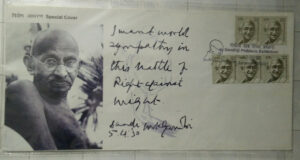 विशेष आवरण Special Cover
I want world
sympathy in
this battle of
Right against
might
5.4.30